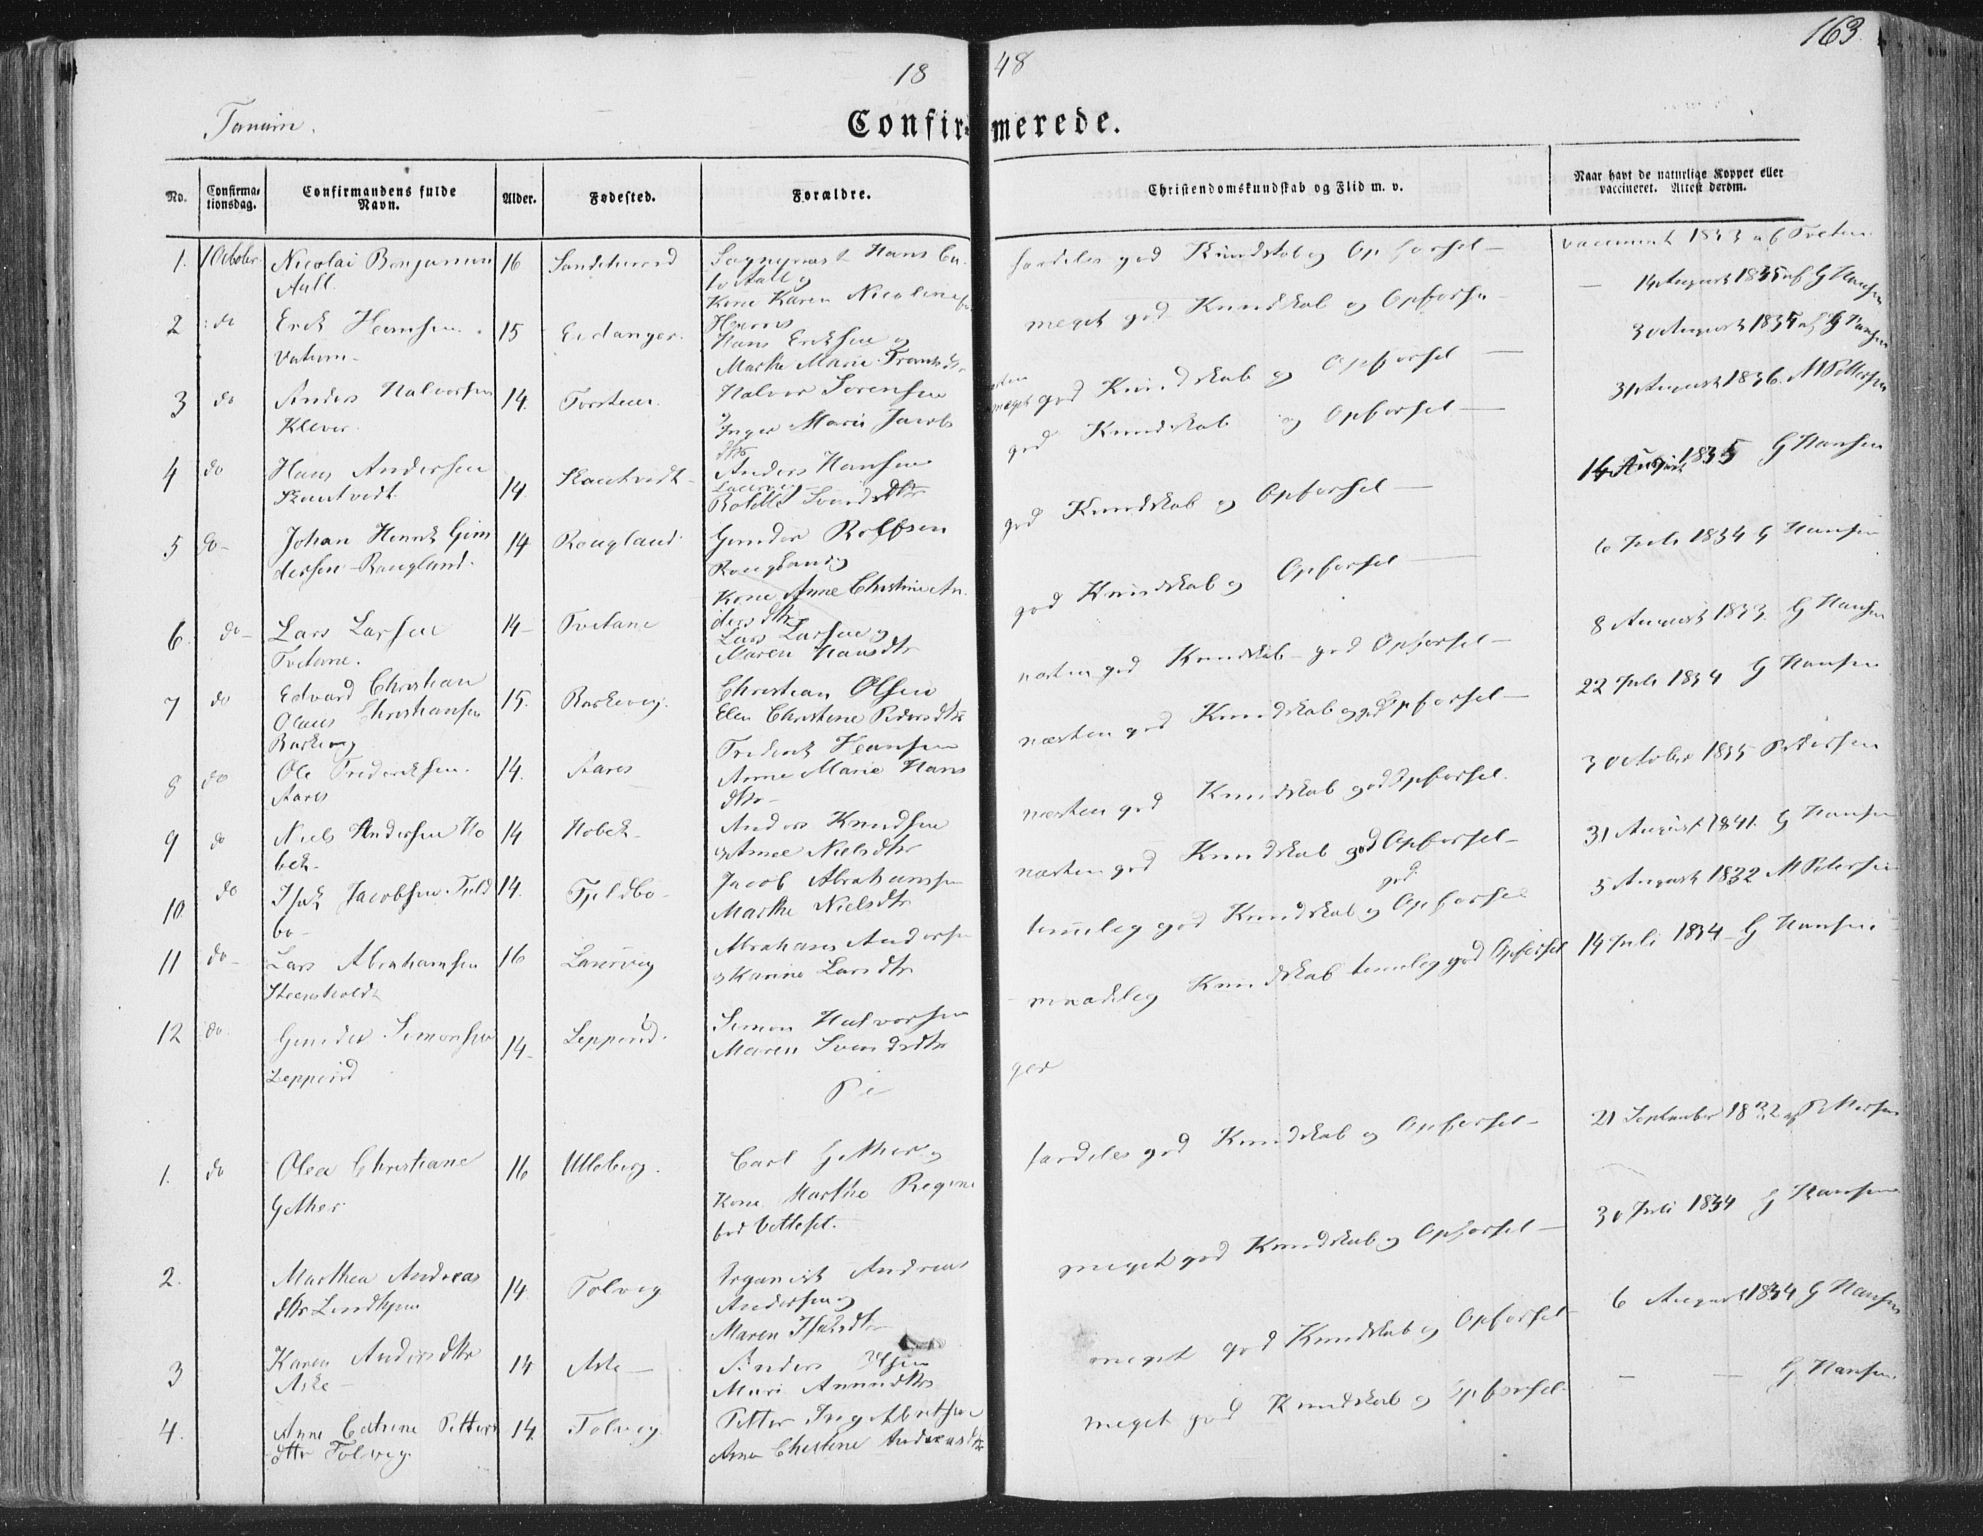 163
18 48
Tanum.
Confirmerede.
No.
Confirma-
tionsdag.
Confirmandens fulde
Navn.
Alder.
Fødested.
Forældre.
Christendomskundskab og Flid m. v.
Naar havt de naturlige Kopper eller
vaccineret. Attest derom.
1. 1 October Nicolai Benjamin 16 Sandeherred Hans
Aall.
Kone Karen Nicoline
særdeles god Kundskab og Opførsel - vaccineret 1833 af Tveten
2 do Erik Hansen 15 Eidanger. Hans Eriksen og
Marthe Marie Frantsdtr
meget god Kundskab og Opførsel - 14 August 1835 af G Hansen
3 do Anders Halvorsen 14. Halvor Sørensen
Klever. Inger Marie Jacobs
dtr
meget god Kundskab og Opførsel - 30 August 1835 af G Hansen
4 do Hans Andersen 14 Skautvedt Anders Hansen
Skautvedt. Svendsdtr
god Kundskab og Opførsel - 31 August 1836. M Pettersen
5 do- Johan Henrik Gun 14 Rougland Gunder Rolfsen
dersen Rougland. Rougland og
Kone Anne Christine An
dersdtr
god Kundskab og Opførsel - 14 August 1835 G Hansen
6 do- Lars Larsen 14- Tvetane Lars Larsen og
Tvetane. Maren Hansdtr
god Kundskab og Opførsel - 6 Juli 1834 G Hansen
7 do Edvard Christian 15. Barkevig. Christian Olsen
Olaus Christiansen Elen Christine Pedersdtr
Barkevig
næsten god Kundskab - god Opførsel - 8 August 1833. G Hansen
8 do Ole Frederiksen. 14. Aares Frederik Hansen
Aares Anne Marie Hans
dtr-
næsten god Kundskab og god Opførsel - 22 Juli 1834 G Hansen
9 do Niels Andersen Ho 14 Hobek- Anders Knudsen
bek- og Anne Nielsdtr
næsten god Kundskab god Opførsel. 3 October 1835 Pettersen
10 do Isak Jacobsen Fjeld 14. Fjeldbo- Jacob Abrahamsen
bo- Marthe Nielsdtr
næsten god Kundskab god Opførsel - 31 August 1841. G Hansen
11 do- Lars Abrahamsen 16 Laurvig Abraham Andersen
og Karine Larsdtr
temmelig god Kundskab og god Opførsel 5 August 1832 M Petersen
12 do. Gunder Simonsen 14- Lepperød. Simon Halvorsen
Lepperød Maren Svendsdtr
maadelig Kundskab temmelig god Opførsel 14 Juli 1834- G Hansen
Pi ger
1. do Olea Christiane 16 Ulleberg. Carl Gether og
Gether Kone Marthe Regine
fød Vettesel.
særdeles god Kundskab og Opførsel - 21 September 1832 af Pettersen
2. Marthea Andreas 14. Tolvig Organist Andreas
dtr Lindhjem Andersen og
Maren Isaksdtr
meget god Kundskab og Opførsel - 30 Juli 1834 G Hansen
3 Karen Andersdtr 14 Aske- Anders Olsen
Aske - Mari Amundsdtr
meget god Kundskab og Opførsel - 6 August 1834 G Hansen
4. Anne Catrine Petters 14. Tolvig Petter Ingebretsen
dttr Tolvig. Anne Christine Andreasdtr
meget god Kundskab og Opførsel - - - G Hansen